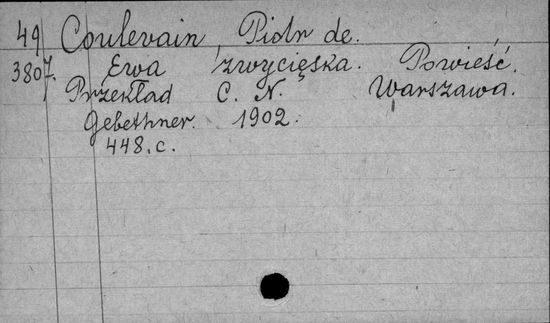 49 Coulevain Piotr de.
3807. Ewa zwycięska. Powieść.
Przekład C. N. Warszawa.
Gebethner. 1902.
448. c.